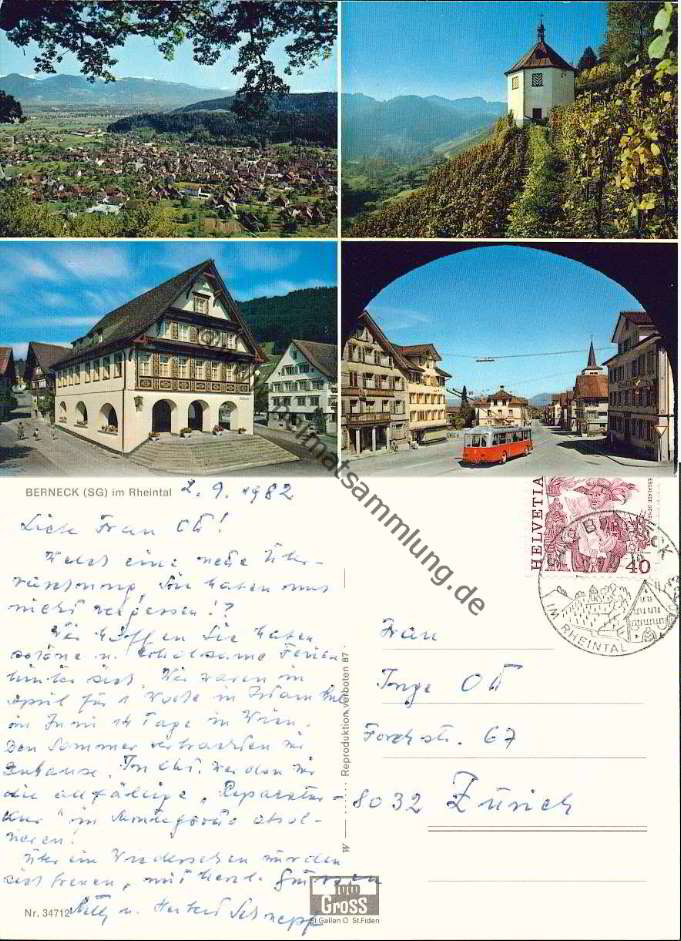 BERNECK (SG) im Rheintal 2.9.1982
Liebe Frau Ott!
Welch eine neue Über-
raschung, Sie haben uns
nicht vergessen!?
Wir hoffen Sie haben
schöne u. erholsame Ferien
hinter sich. Wir waren im
April für 1 Woche in
im Juni 14 Tage in Wien.
Den Sommer verbrachten wir
Zuhause. Im Okt. werden wir
die allfällige „Reparatur-
Kur" in Montegrotto absol-
vieren.
Über ein Wiedersehen würden
sich freuen, mit herzl. Grüssen
Nelly u. Herbert Schnepf
Nr. 34712
HELVETIA
40
BERNECK
IM RHEINTAL
Frau
Inge Ott
Forchstr. 67
8032 Zürich
Reproduktion verboten 87
foto
Gross
St Gallen O St.Fiden
oldthing heimatsammlung.de